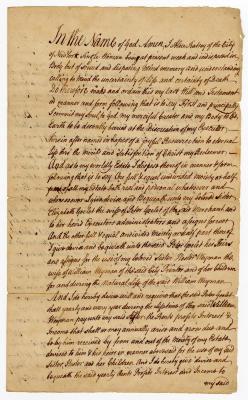 In the Name of God Amen, I Alice Keatoy of the City
of New York Single Woman being at present weak and indisposed in
Body but of Sound and disposing Mind memory and understanding
calling to mind the uncertainty of Life and certainty of Death
Do therefore make and ordain this my Last Will and Testament
in manner and form following that is to say First and principally
I commit my Soul to God my merciful Creator and my Body to the
Earth to be decently buried at the discretion of my Executor
herein after named in hopes of a Joyful Resurrection to eternal
Life thro the merits and Satisfaction of Christ my Redeemer.
And as to my worldly Estate I dispose thereof in manner & form
following that is to say One full & equal undivided moiety or half
part of all my Estate both real and personal whatsoever and
wheresoever I give devise and Bequeath unto my
Elizabeth the wife of Peter of the said Merchant and
to her heirs Executors administrators and assigns forever
And the other full & equal undivided moiety or half part thereof
I give devise and bequeath unto the said Peter his Heirs
and assigns for the use of my beloved Sister Hester Weyman the
wife of William Weyman of the said City Printer and of her Children
for and during the natural life of the said William Weyman.
And I do hereby devise and require that the said Peter
shall yearly and every year during the lifetime of the said William
Weyman pay unto my said Sister the Rents profits Interest &
Income that shall or may annually arise and grow due and
to be him received by from and out of the moiety of my Estate
devised to him & his heirs in manner aforesaid for the use of my said
Sister Hester and her Children. And I do hereby give devise and
bequeath the said yearly Rents Profits Interest and Income to
my said